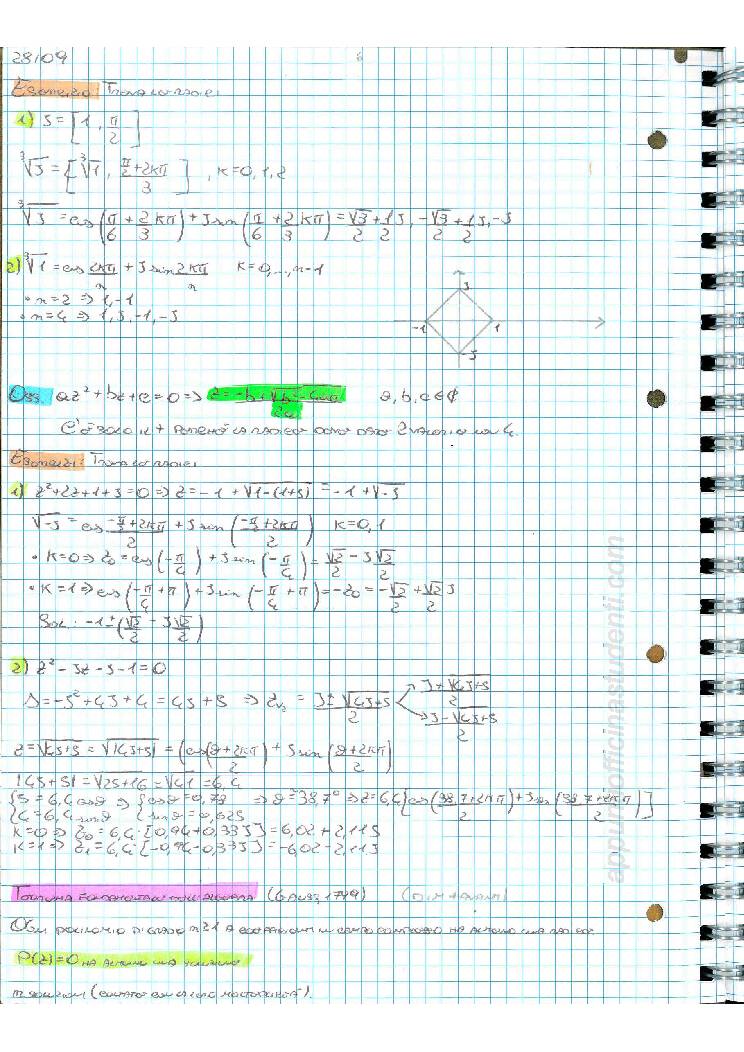 28/09
Esercizio: Trova le radici
1) J = [1, π/2]
∛J = [∛1, (π/2+2kπ)/3], K=0,1,2
∛J = cos(π/6 + 2/3 kπ) + J sin(π/6 + 2/3 kπ) = √3/2 + 1/2 J, -√3/2 + 1/2 J, -J
2) ⁿ√1 = cos 2kπ/n + J sin 2kπ/n K=0,...,n-1
• n=2 ⇒ 1,-1
• n=4 ⇒ 1,J,-1,-J
J
-1 1
-J
Oss. az²+bz+c=0 ⇒ z = -b+√b²-4ac/2a a,b,c∈ℂ
C'è solo il + perché la radice
Esercizi: Trova le radici
1) z²+2z+1+J=0 ⇒ z=-1+√1-(1+J) = -1+√-J
√-J = cos (-π/2+2kπ)/2 + J sin((-π/2+2kπ)/2) K=0,1
• K=0 ⇒ z₀ = cos(-π/4) + J sin(-π/4) = √2/2 - J√2/2
• K=1 ⇒ cos(-π/4+π) + J sin(-π/4+π) = -z₀ = -√2/2 + √2/2 J
Sol: -1±(√2/2 - J√2/2)
2) z²-Jz-J-1=0
Δ=-J²+4J+4 = 4J+5 ⇒ z₁,₂ = J±√4J+5/2
J+√4J+5/2
J-√4J+5/2
z=√4J+5 = √|4J+5| = (cos(ϑ+2kπ/2) + J sin(ϑ+2kπ/2)
|4J+5| = √25+16 = √41 = 6,4
{5=6,4 cosϑ ⇒ {cosϑ=0,78 ⇒ ϑ=38,7° ⇒ z=6,4[cos(38,7+2kπ/2)+J sin(38,7+2kπ/2)]
{4=6,4 sinϑ {sinϑ=0,625
K=0 ⇒ z₀=6,4·[0,94+0,33J]=6,02+2,11J
K=1 ⇒ z₁=6,4·[-0,94-0,33J]=-6,02-2,11J
Teorema fondamentale dell'algebra (Gauss, 1799) (Dim + avanti)
Ogni polinomio di grado n≥1 a coefficienti in campo complesso ha almeno una radice.
P(z)=0 ha almeno una soluzione
n soluzioni (contate con la loro molteplicità).
appuntiofficinastudenti.com